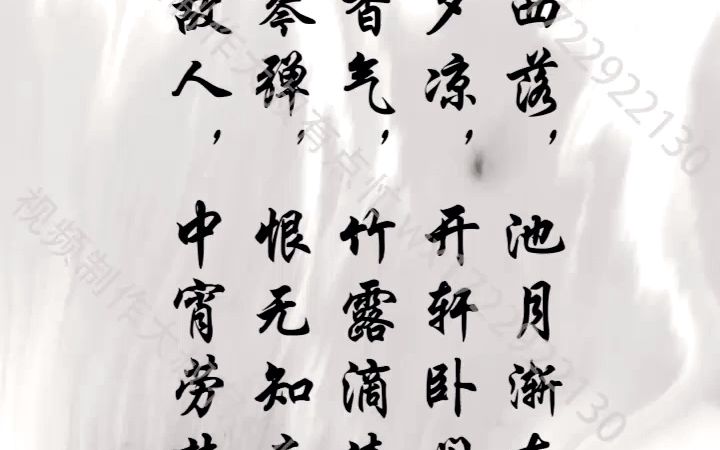 西落，池月渐
夕凉，开轩卧
香气，竹露滴
琴弹，恨无知
故人，中宵劳
722922130
视频制作大